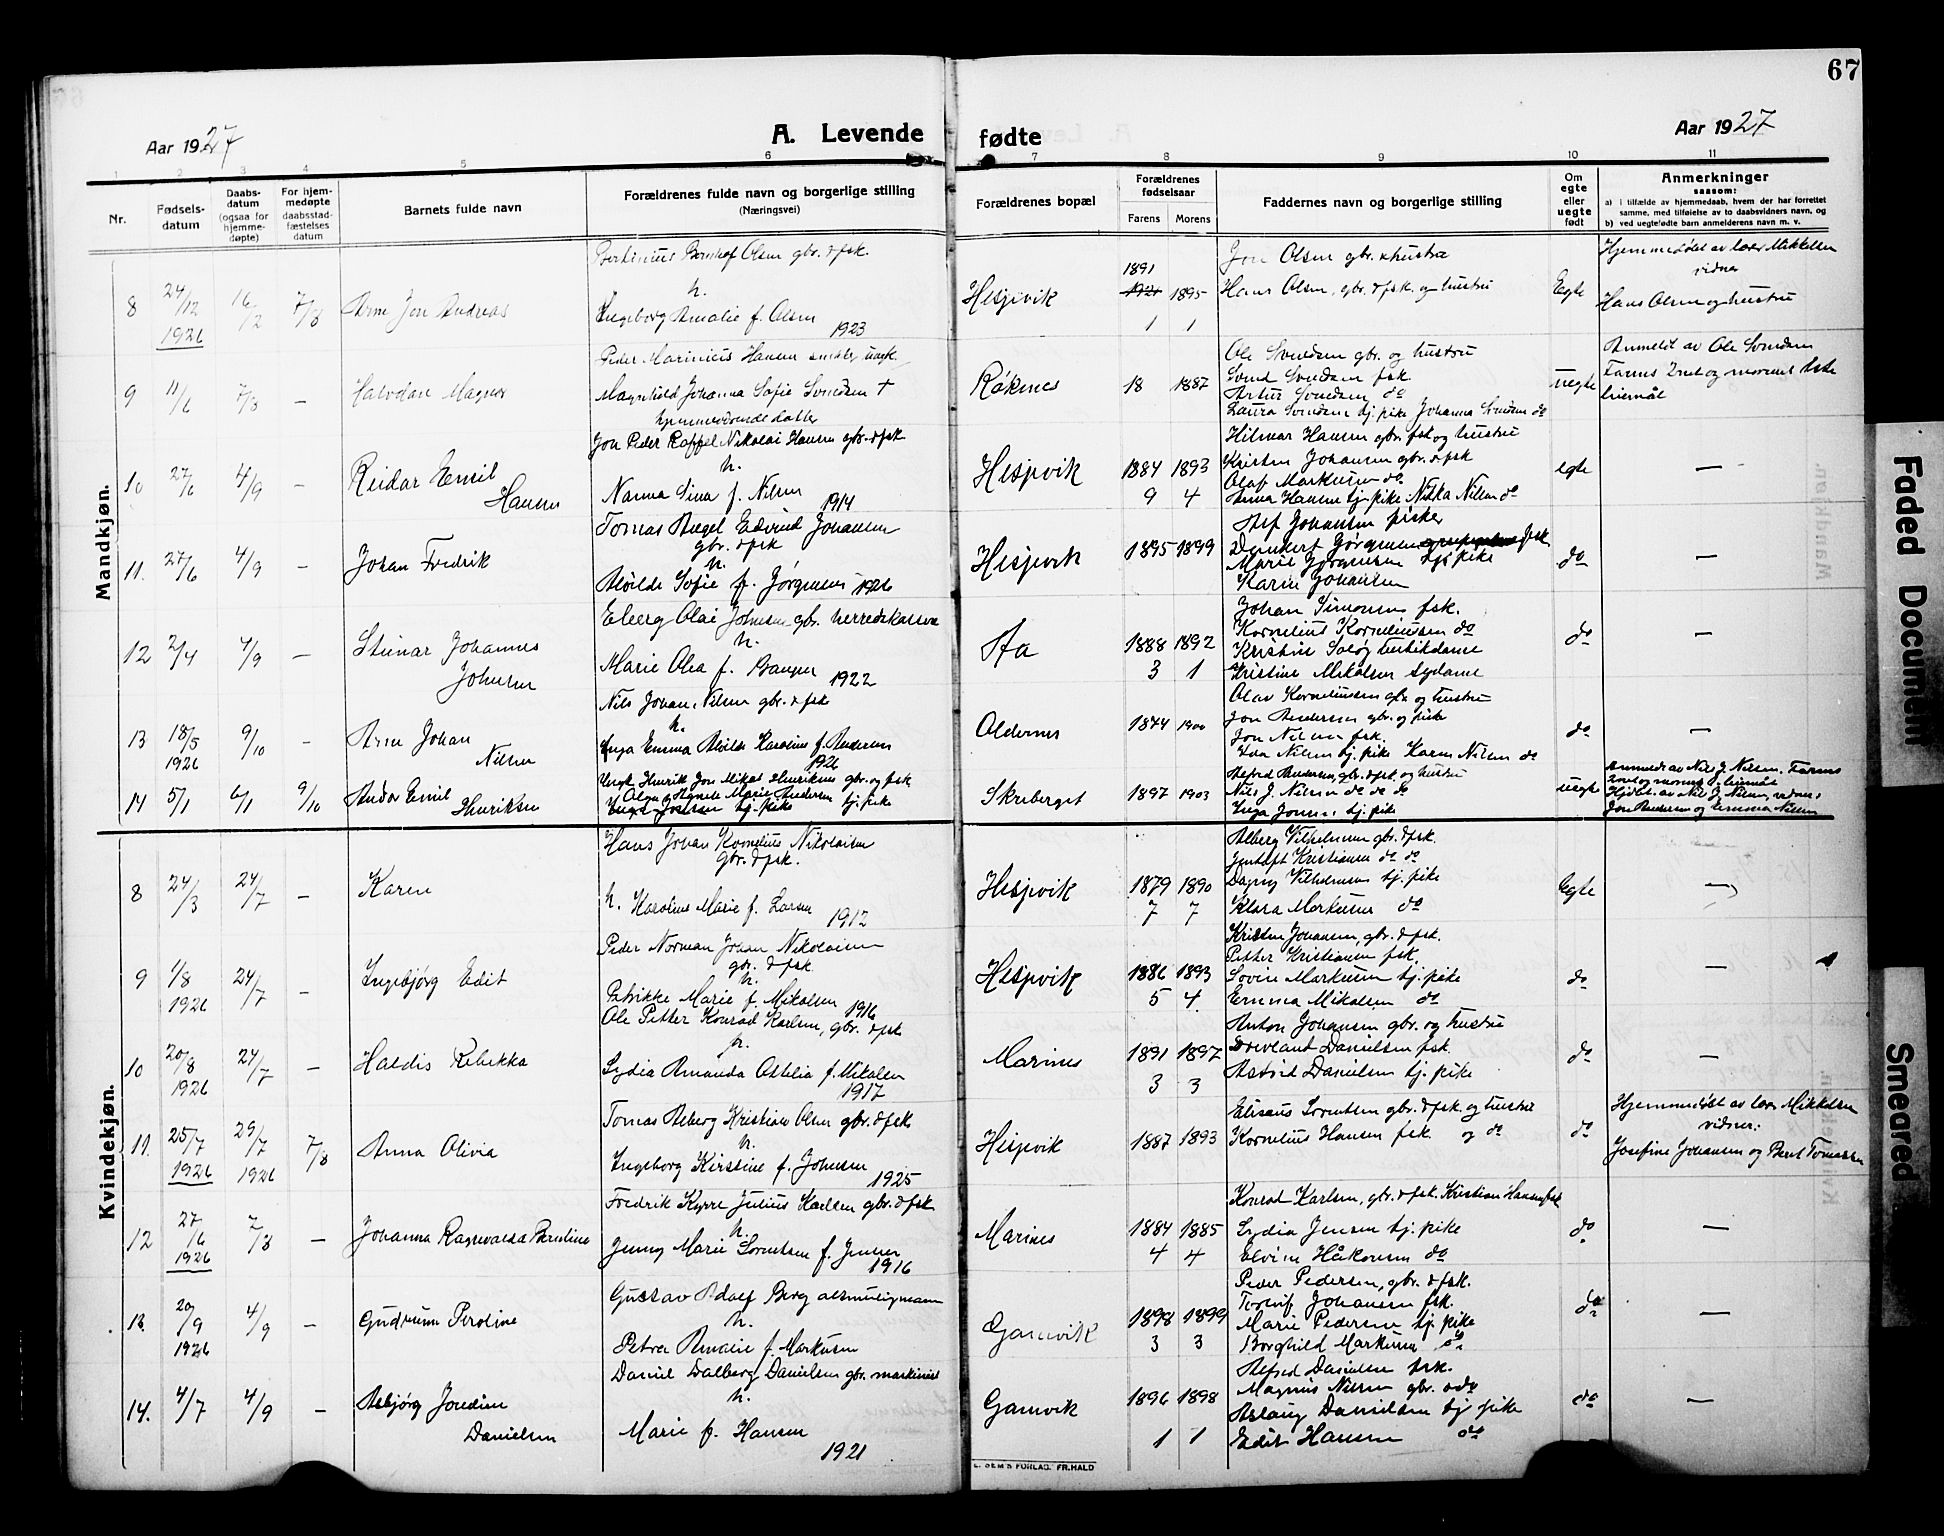 67
Aar 1927
A. Levende fødte
Aar 1927
1 2 3 4 5 6 7 8 9 10 11
Nr.
Fødsels-
datum
Daabs-
datum
(ogsaa for
hjemme-
døpte)
For hjem-
medøpte
daabsstad-
fæstelses
datum
Barnets fulde navn
Forældrenes fulde navn og borgerlige stilling
(Næringsvei)
Forældrenes bopæl
Forældrenes
fødselsaar
Farens Morens
Faddernes navn og borgerlige stilling
Om
egte
eller
uegte
født
Anmerkninger
saasom:
a) i tilfælde av hjemmedaab, hvem der har forrettet
samme, med tilføielse av to daabsvidners navn, og
b) ved uegtefødte barn anmelderens navn m. v.
Mandkjøn.
8 24/12 1926 16/2 7/8 Arne Jon Andreas
Olsen gbr. & fsk.
h.
Ingeborg Amalie f. Olsen
1923
Hespvik
1891 1895
1 1
Jon Olsen gbr. & hustru
Hans Olsen, gbr. & fsk. og hustru
Egte
Hjemmedøbt av lærer Mikkelsen
vidner
Hans Olsen og hustru
9 11/6 7/8 — Halvdan Magnus
Peder Marinius Hansen
Magnhild Johanna Sofie Svendsen +
hjemmeværende datter
Røkenes
18 1887
Ole Svendsen gbr. og hustru
Svend Svendsen fsk.
Artur Svendsen do
Laura Svendsen tj. pike Johanna Svendsen do
uegte
Anmeldt av Ole Svendsen
Farens 2net og morens 1ste
leiermål
10 27/6 4/9 — Reidar Emil
Hansen
Jon Peder Nikolai Hansen gbr. & fsk
h.
Nanna Sina f. Nilsen
1914
Hespvik
1884 1893
9 4
Hilmar Hansen gbr. fsk og hustru
Kristen Johansen gbr. & fsk
Olaf Markusen do
Anna Hansen tj. pike Nilsen do
egte
—
11. 27/6 4/9 — Johan Fredrik
Tomas Edvind Johansen
gbr. & fsk
h.
Alvilde Sofie f. Jørgensen 1926
Hespvik
1895 1899
Alf Johansen fisker
Jørgensen fsk
Marie Jørgensen tj. pike
Karen Johansen
do
—
12 2/4 4/9 — Steinar Johannes
Johnsen
Elberg Olai Johnsen gbr. herredskasserer
h.
Marie Olea f.
1922
Aa
1888 1892
3 1
Johan Simonsen fsk.
Kornelius Korneliussen do
Kristine butikdame
Kristine Mikalsen sydame
do
—
13 18/5 1926 9/10 — Arne Johan
Nilsen
Nils Johan Nilsen gbr. & fsk
h.
Inga Emma Alvilde Karoline f. Andersen
1926
Oldernes
1844 1900
Olav Korneliussen gbr. og hustru
Jon Andersen gbr. og pike
Jon Nilsen fsk.
Nilsen tj. pike Karen Nilsen do
do
—
14 5/1 6/1 9/10 Andor Emil
Henriksen
Ungk. Henrik Jon Mikal Henriksen gbr. og fsk
Marie Andersen tj. pike
Skreberget
1897 1903
Alfred Andersen, gbr. & fsk. og hustru
Nils J. Nilsen do do do
Inga Jonsen tj. pike
uegte
Anmeldt av Nils J. Nilsen. Farens
2net og morens leiermål
Hjdøbt av Nils J. Nilsen, vidner
Jon Andersen og Emma Nilsen
Kvindekjøn.
8 24/3 24/7 — Karen
Hans Johan Kornelius Nikolaisen
gbr. & fsk.
h. Karoline Marie f. Larsen
1912
Hespvik
1879 1890
7 7
Alberg Vilhelmsen gbr. & fsk.
Jentoft Kristiansen do do
Dagny Vilhelmsen tj. pike
Klara Markusen do
Egte
—
9 1/8 1926 24/7 — Ingebjørg Edit
Peder Norman Johan Nikolaisen
gbr. & fsk.
h.
Petrikke Marie f. Mikalsen
1916
Hespvik
1886 1893
5 4
Kristen Johansen, gbr. & fsk.
Petter Kristiansen fsk.
Lovise Markusen tj. pike
Emma Mikalsen do
do
—
10 20/8 1926 24/7 — Haldis Rebekka
Ole Petter Konrad Karlsen, gbr. & fsk
h.
Lydia Amanda Ottelia f. Mikalsen
1917
Marines
1891 1897
3 3
Anton Johansen gbr. og hustru
Danielsen fsk.
Astrid Danielsen tj. pike
do
—
11. 25/7 1926 29/7 1926 7/8 Anna Olivia
Tomas Alberg Kristian Olsen gbr. & fsk
h.
Ingeborg Kirstine f. Johnsen
1925
Hespvik
1887 1893
Elisæus Lorentsen gbr. & fsk. og hustru
Kornelius Hansen fsk. og do
do
Hjemmedøbt av lær. Mikkelsen
vidner:
Josefine Johansen og Berit Tomassen
12 27/6 1926 7/8 — Johanna Ragnvalda Berntine
Fredrik Kyrre Julius Karlsen gbr. & fsk
h.
Jenny Marie Lorentsen f. Jensen
1916
Marines
1884 1885
4 4
Konrad Karlsen, gbr. & fsk. Kristian Hansen fsk
Lydia Jensen tj. pike
Elvine Håkonsen do
do
—
13. 20/9 1926 4/9 — Gudrunn Peroline
Gustav Adolf Berg altmuligmann
h.
Petra Amalie f. Markusen
Gamvik
1898 1899
3 3
Peder Pedersen, gbr. & fsk.
Torleif Johansen fsk.
Marie Pedersen tj. pike
Borghild Markusen do
do
—
14. 4/7 4/9 — Asbjørg Jondine
Danielsen
Daniel Dalberg Danielsen gbr. maskinist
h.
Marie f. Hansen
1921
Gamvik
1896 1898
1 1
Alfred Danielsen fsk.
Magnus Nilsen gbr. & do
Aslaug Danielsen tj. pike
Edit Hansen do
do
—
E. SEM'S FORLAG. FR.HALD
Faded Document
Smeared